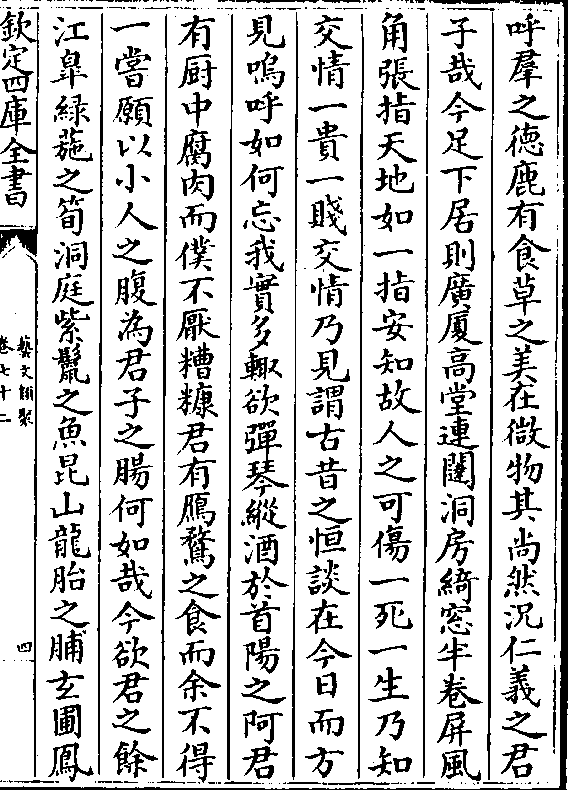 呼羣之徳鹿有食草之美在微物其尚然況仁義之君
子哉今足下居則廣厦高堂連闥洞房綺窓半卷屏風
角張指天地如一指安知故人之可傷一死一生乃知
交情一貴一賤交情乃見謂古昔之恒談在今日而方
見嗚呼如何忘我實多輙欲彈琴縱酒於首陽之阿君
有厨中腐肉而僕不厭糟糠君有鴈鶩之食而余不得
一嘗願以小人之腹為君子之腸何如哉今欲君之餘
江臯緑葹之筍洞庭紫鬛之魚昆山龍胎之脯玄圃鳳
欽定四庫全書
藝文類聚
卷七十二
四